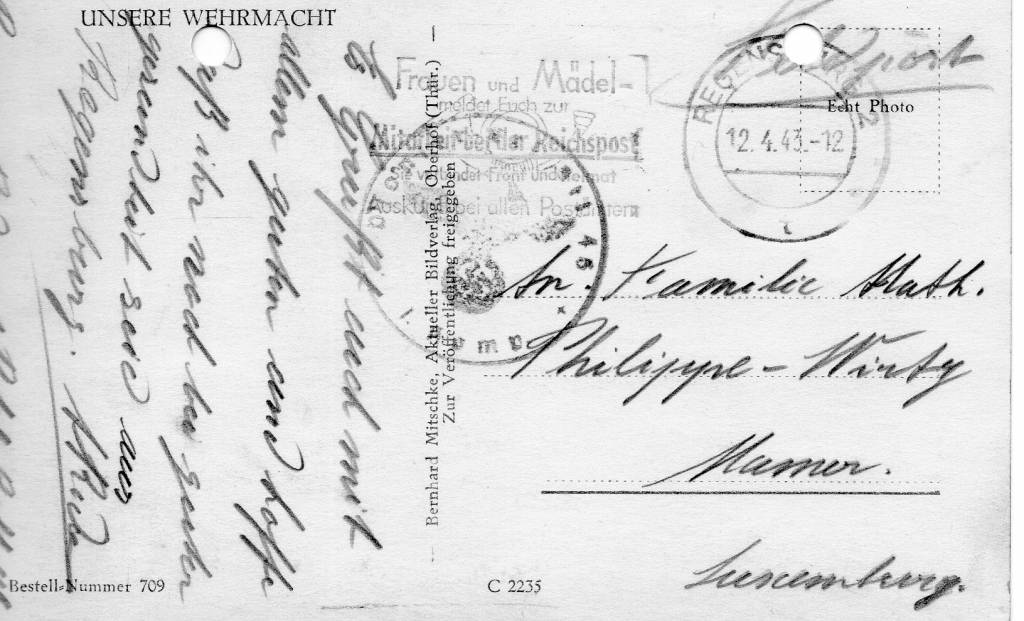 UNSERE WEHRMACHT
Feldpost
Echt Photo
REGENSBURG 2
12.4.43.-12
Frauen und Mädel-
meldet Euch zur
Mitarbeit bei der Reichspost
Sie verbindet Front und Heimat
Auskunft bei allen Postämtern
Grüßt euch mit
allem guten und hoffe
daß ihr noch bei guter
gesundheit seid aus
Regensburg.
Bernhard Mitschke, Aktueller Bildverlag, Oberhof (Thür.)
Zur Veröffentlichung freigegeben
An. Familie Math.
Philippe-Wirtz
Mamer.
Luxemburg.
Bestell-Nummer 709
C 2235